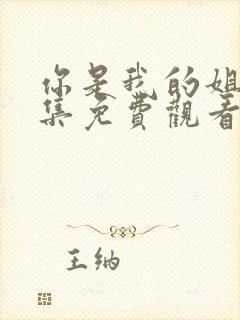 你是我的姐
集免費觀看
王纳